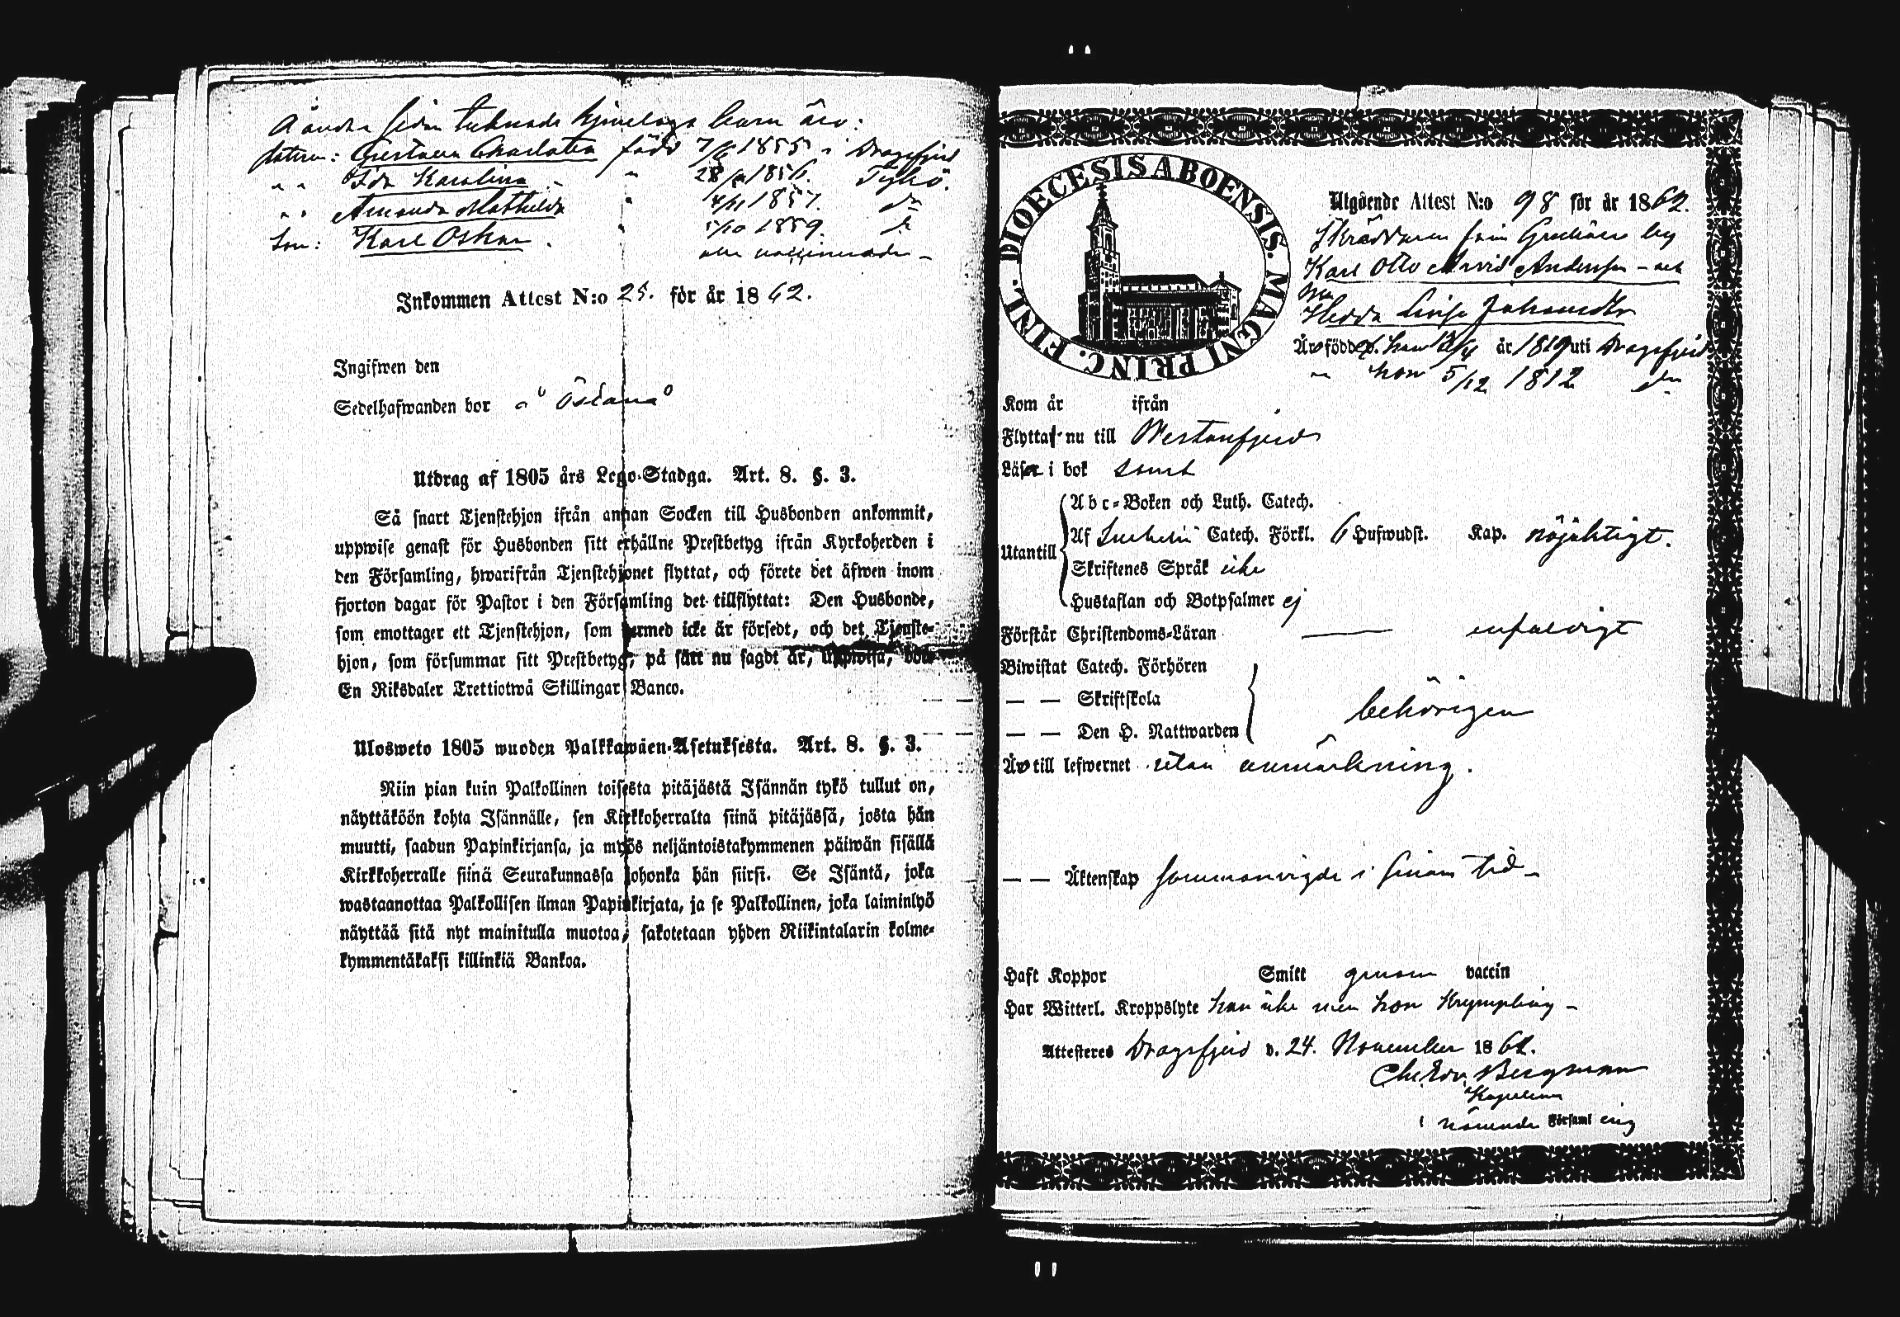 Å andra sidan tecknade hjonelags barn äro:
dottern: Gustava Charlotta född 7/6 1855 i Dragsfjerd
" " Ida Karolina " 28/ 1856. Tykö.
" " Amanda Mathilda " 4/11 1857. do
Son: Karl Oskar. " 1/10 1859. do
alla vaccinerade –
Inkommen Attest N:o 25. för år 1862.
Ingifwen den
Sedelhafwanden bor å "Östanå"
Utdrag af 1805 års Lego-Stadga. Art. 8. §. 3.
Så snart Tjenstehjon ifrån annan Socken till Husbonden ankommit,
uppwise genast för Husbonden sitt erhållne Prestbetyg ifrån Kyrkoherden i
den Församling, hwarifrån Tjenstehjonet flyttat, och förete det äfwen inom
fjorton dagar för Pastor i den Församling det tillflyttat: Den Husbonde,
som emottager ett Tjenstehjon, som härmed icke är försedt, och det Tjenste-
hjon, som försummar sitt Prestbetyg, på sätt nu sagdt är, uppwisa, böte
En Riksdaler Trettiotwå Skillingar Banco.
Ulosweto 1805 wuoden Palkkawäen-Asetuksesta. Art. 8. §. 3.
Niin pian kuin Palkollinen toisesta pitäjästä Isännän tykö tullut on,
näyttäköön kohta Isännälle, sen Kirkkoherralta siinä pitäjässä, josta hän
muutti, saadun Papinkirjansa, ja myös neljäntoistakymmenen päiwän sisällä
Kirkkoherralle siinä Seurakunnassa johonka hän siirsi. Se Isäntä, joka
wastaanottaa Palkollisen ilman Papinkirjata, ja se Palkollinen, joka laiminlyö
näyttää sitä nyt mainitulla muotoa, sakotetaan yhden Riikintalarin kolme-
kymmentäkaksi killinkiä Bankoa.
DIOECESIS ABOENSIS. MAGNI PRINC. FINL.
Utgående Attest N:o 98 för år 1862.
Skräddaren från by
Karl Otto Arvid Andersson – och
Hedda Lovisa Johansdtr
Äro född han /4 år 1819 uti Dragsfjerd
" hon 5/12 1812 do
Kom år ifrån
Flyttat nu till Westanfjerd
Läser i bok samt
Utantill
Abc-Boken och Luth. Catech.
Af Catech. Förkl. 6 Hufwudst. Kap. nöjaktigt.
Skriftenes Språk icke
Hustaflan och Botpsalmer ej
Förstår Christendoms-Läran — enfaldigt
Biwistat Catech. Förhören
— — Skriftskola
— — Den H. Nattwarden
behörigen
Äro till lefwernet utan anmärkning.
— — Äktenskap sammanvigde i sinom tid –
Haft Koppor Smitt genom vaccin
Har Witterl. Kroppslyte han icke men hon Krympling –
Attesteres Dragsfjerd d. 24. November 1862.
Chr. Edv. Bergman
Kapellan
i närnde Församl ing